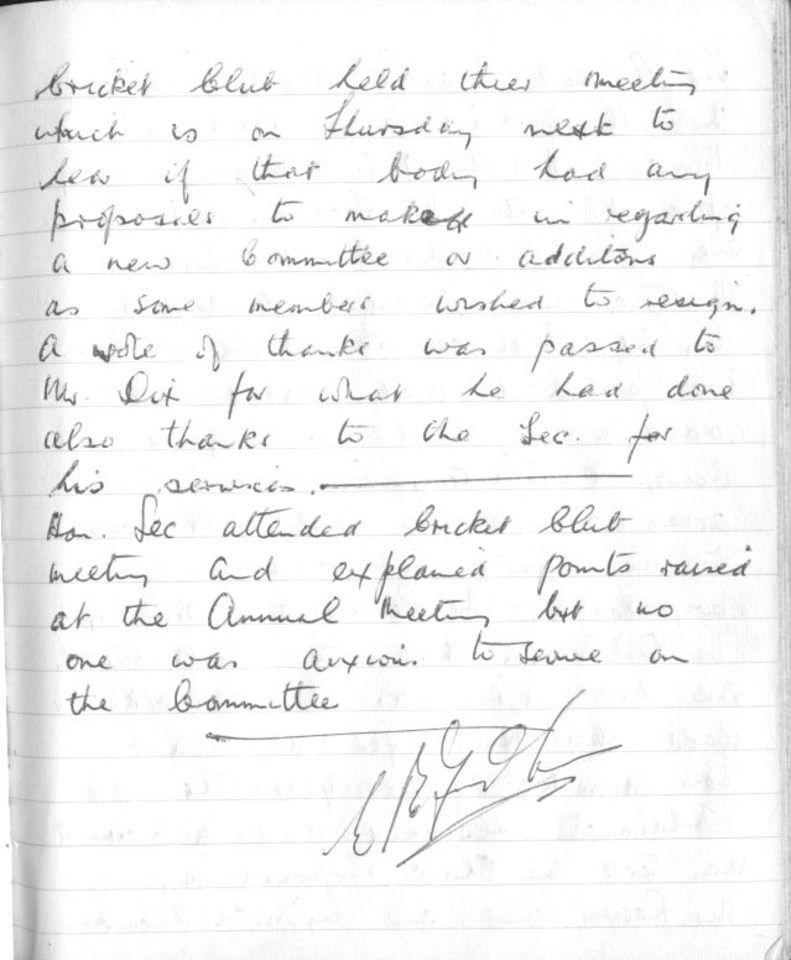 Cricket Club held their meeting
which is on Thursday next to
hear if that body had any
proposals to make in regarding
a new Committee or additions
as some members wished to resign.
A vote of thanks was passed to
Mr. Dix for what he had done
also thanks to the Sec. for
his services.
Hon. Sec attended Cricket Club
meeting and explained points raised
at the Annual Meeting but no
one was anxious to serve on
the Committee